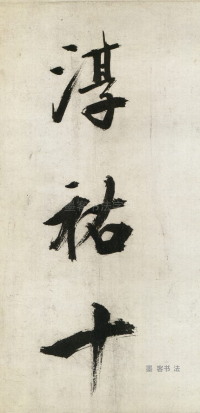 淳祐十
墨客书法